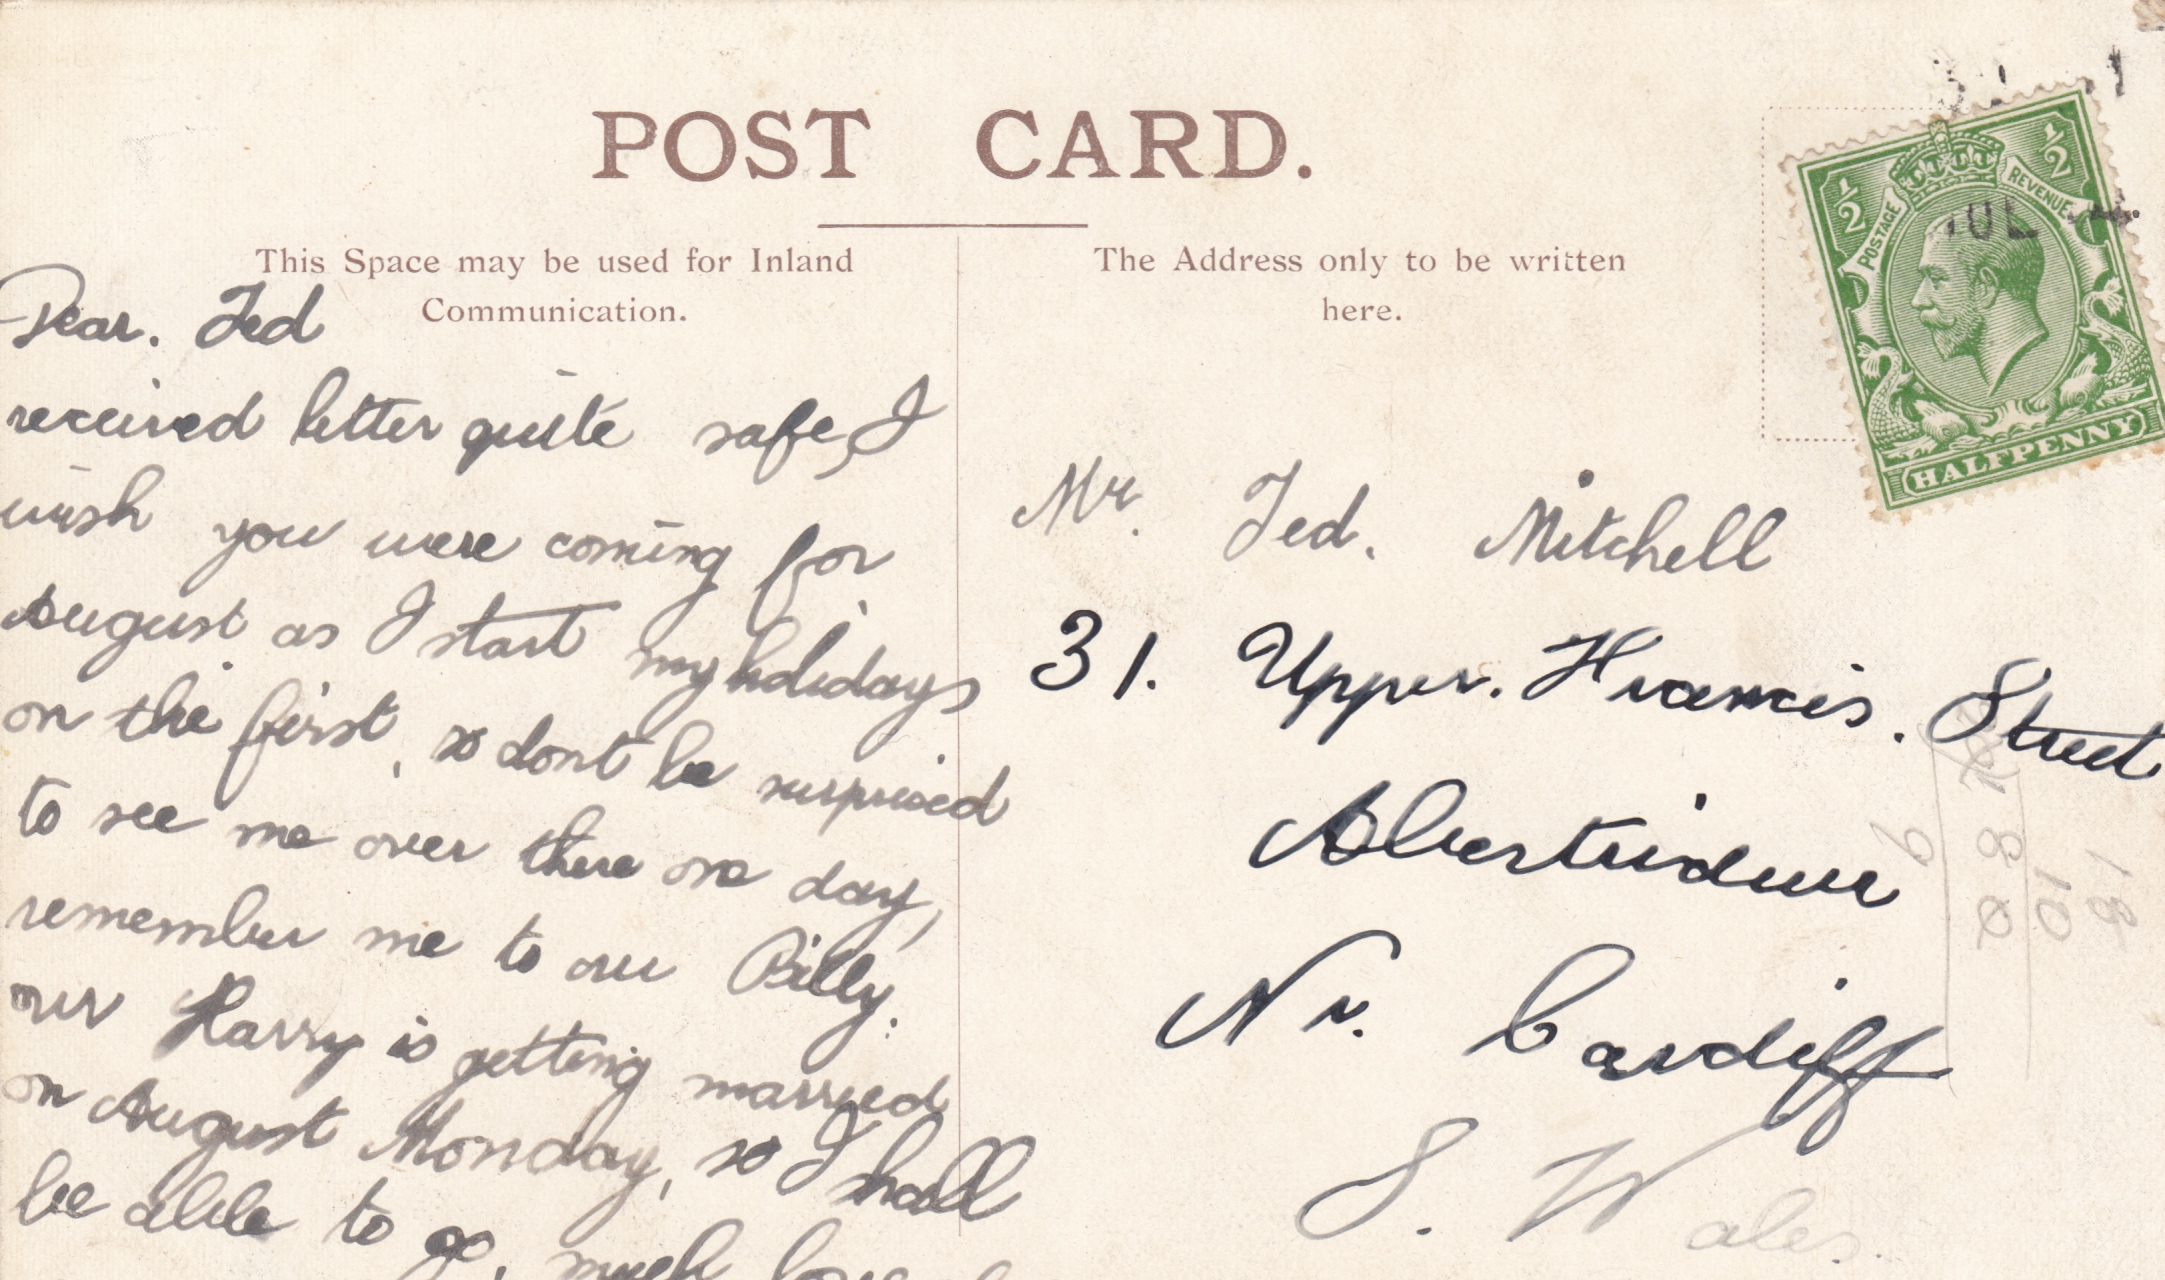 POST CARD.
This Space may be used for Inland
Communication.
The Address only to be written
here.
½ ½
POSTAGE REVENUE
JUL 14.
HALFPENNY
Dear. Ted
received letter quite safe, I
wish you were coming for
August as I start my holidays
on the first, so dont be surprised
to see me over there one day,
remember me to our Billy.
our Harry is getting married
on August Monday, so I shall
be able to go, much love
Mr. Ted. Mitchell
31. Upper. Francis. Street
Abertridwr
Nr. Cardiff
S. Wales.
9
8
10
18